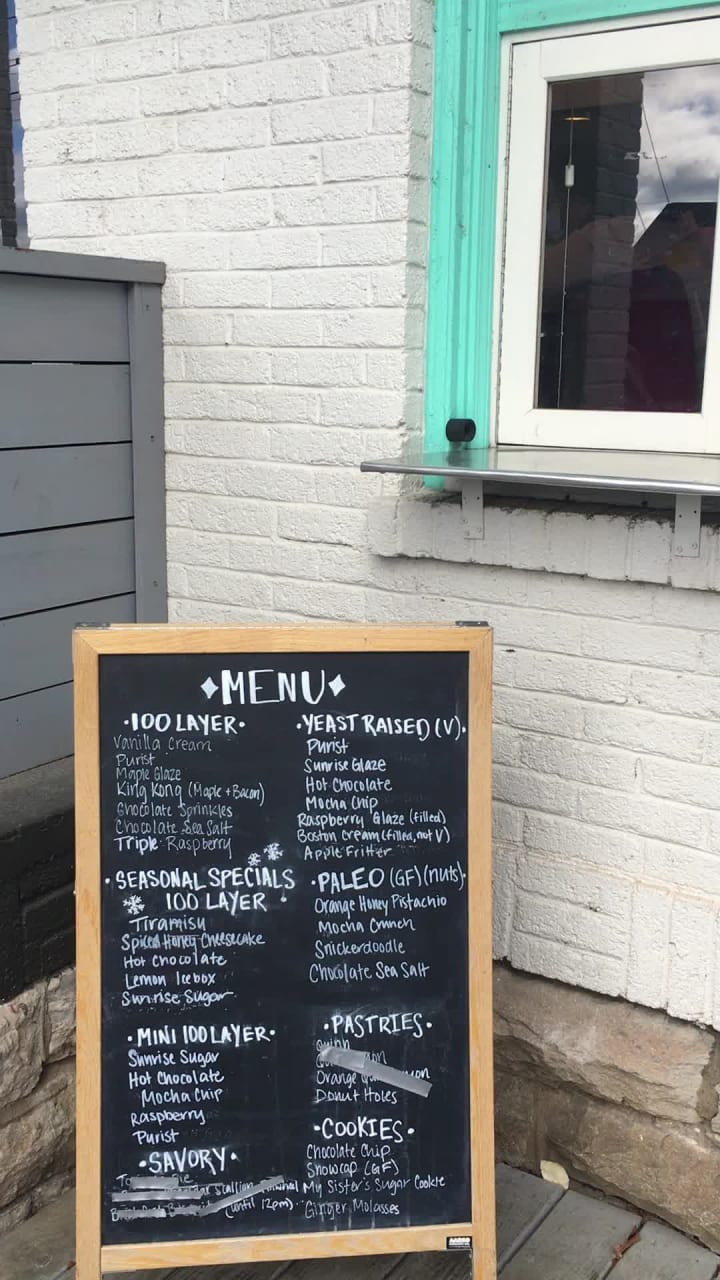 MENU
100 LAYER
Vanilla Cream
Purist
Maple Glaze
King Kong (Maple + Bacon)
Chocolate Sprinkles
Chocolate Sea Salt
Triple Raspberry
SEASONAL SPECIALS
100 LAYER
Tiramisu
Spiced Honey Cheesecake
Hot Chocolate
Lemon Icebox
Sunrise Sugar
MINI 100 LAYER
Sunrise Sugar
Hot Chocolate
Mocha Chip
Raspberry
Purist
SAVORY
(until 12pm)
YEAST RAISED (V)
Purist
Sunrise Glaze
Hot Chocolate
Mocha Chip
Raspberry Glaze (filled)
Boston Cream (filled, not V)
Apple Fritter
PALEO (GF) (nuts)
Orange Honey Pistachio
Mocha Crunch
Snickerdoodle
Chocolate Sea Salt
PASTRIES
Orange
Donut Holes
COOKIES
Chocolate Chip
Snowcap (GF)
My Sister's Sugar Cookie
Ginger Molasses